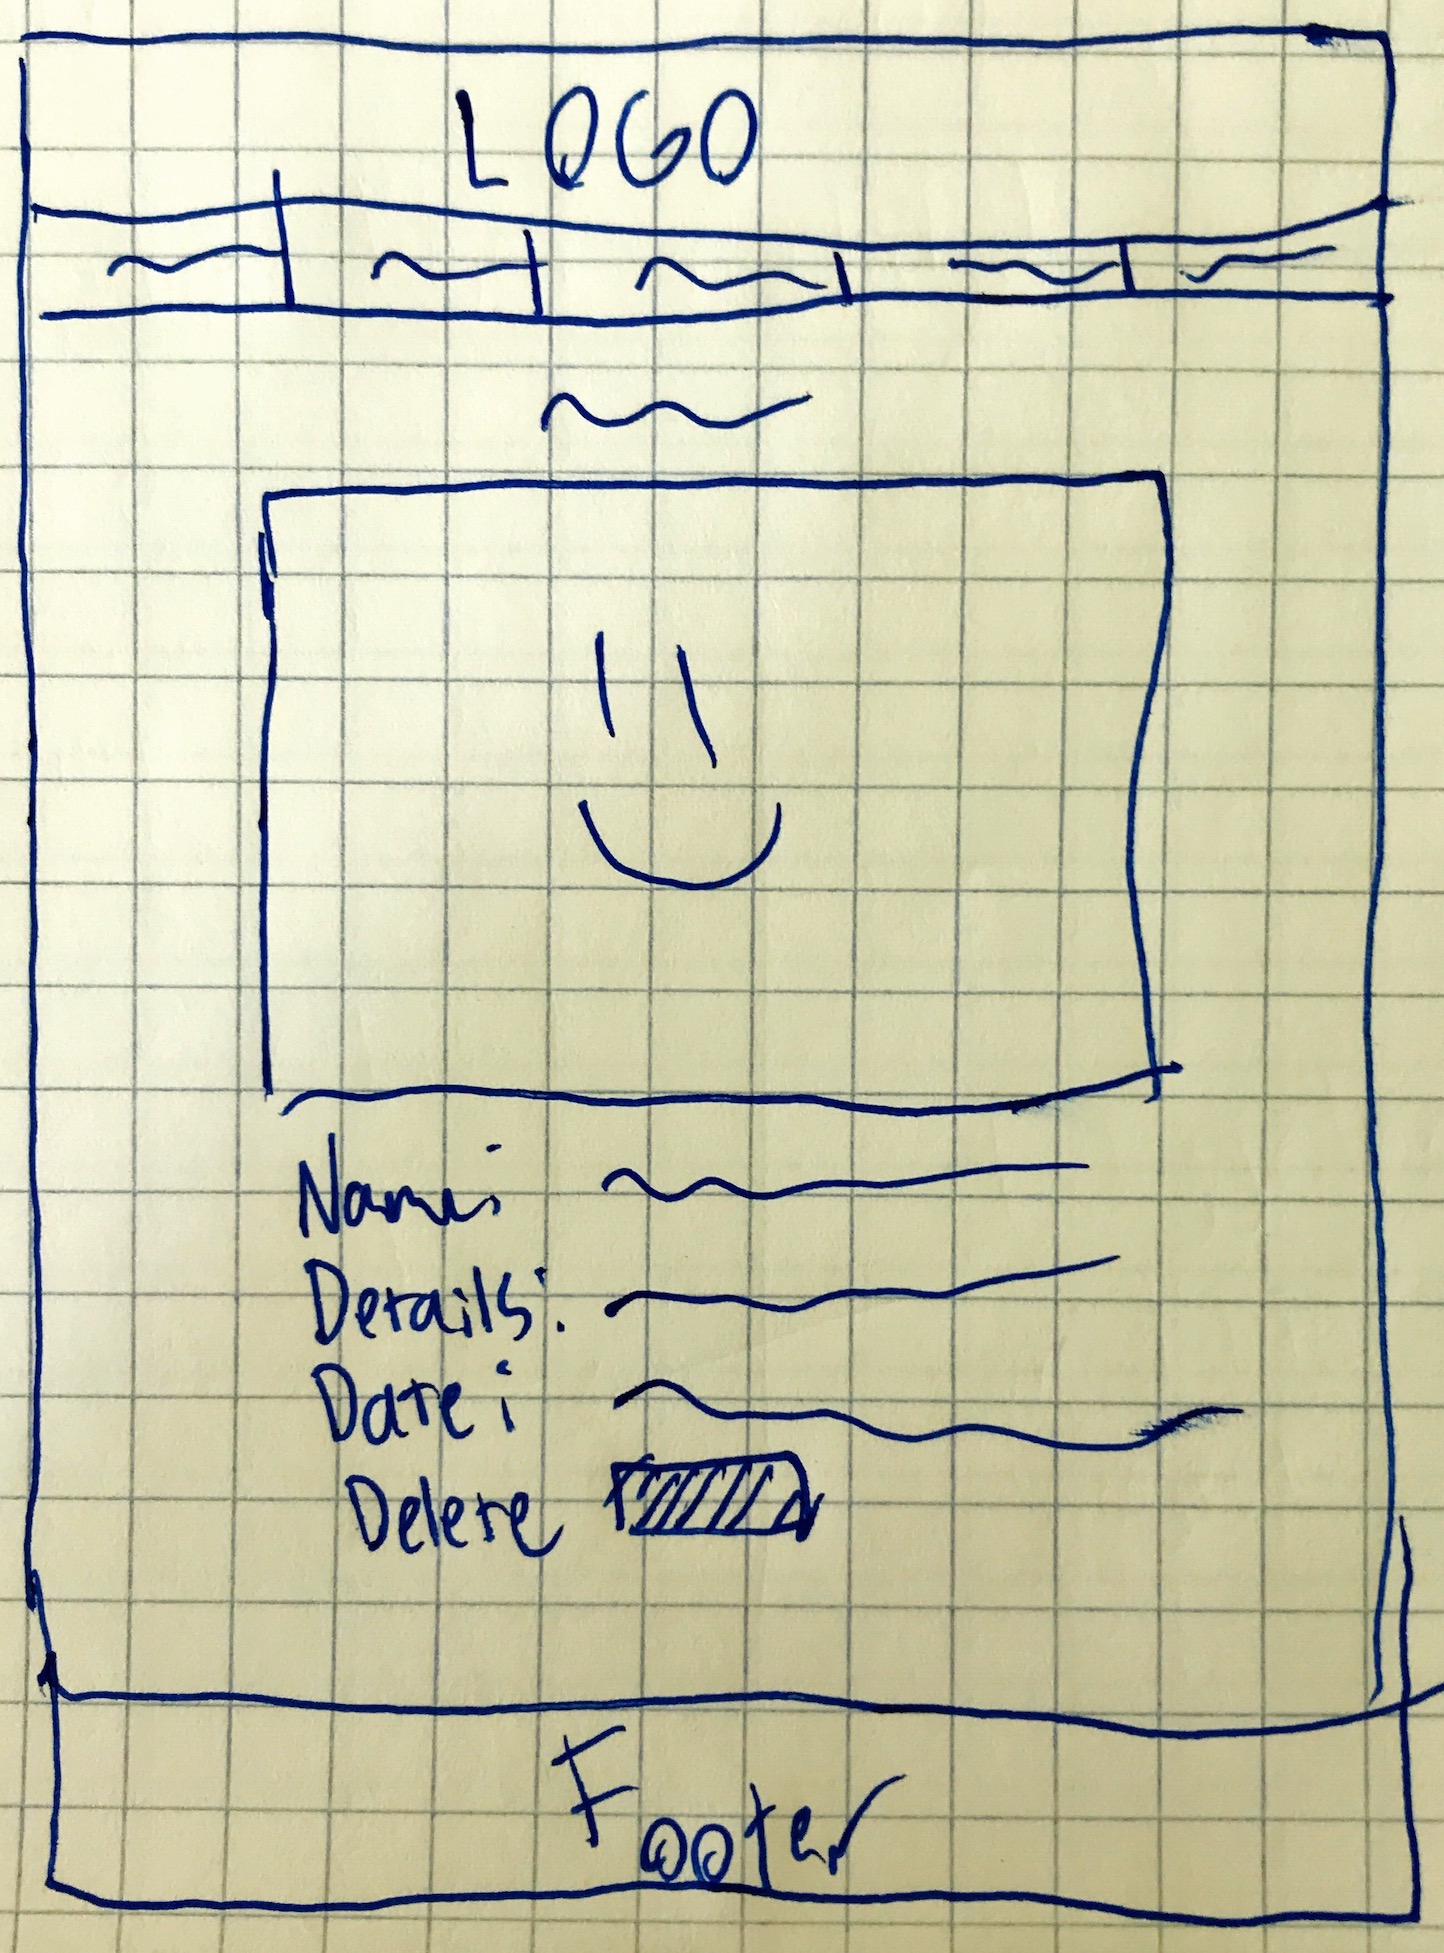 LOGO
Name:
Details:
Date:
Delete
Footer